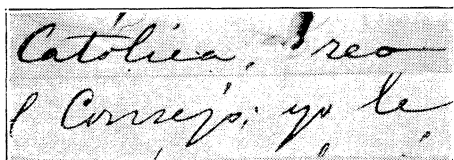 Católica, Creo
l Consejo; yo le